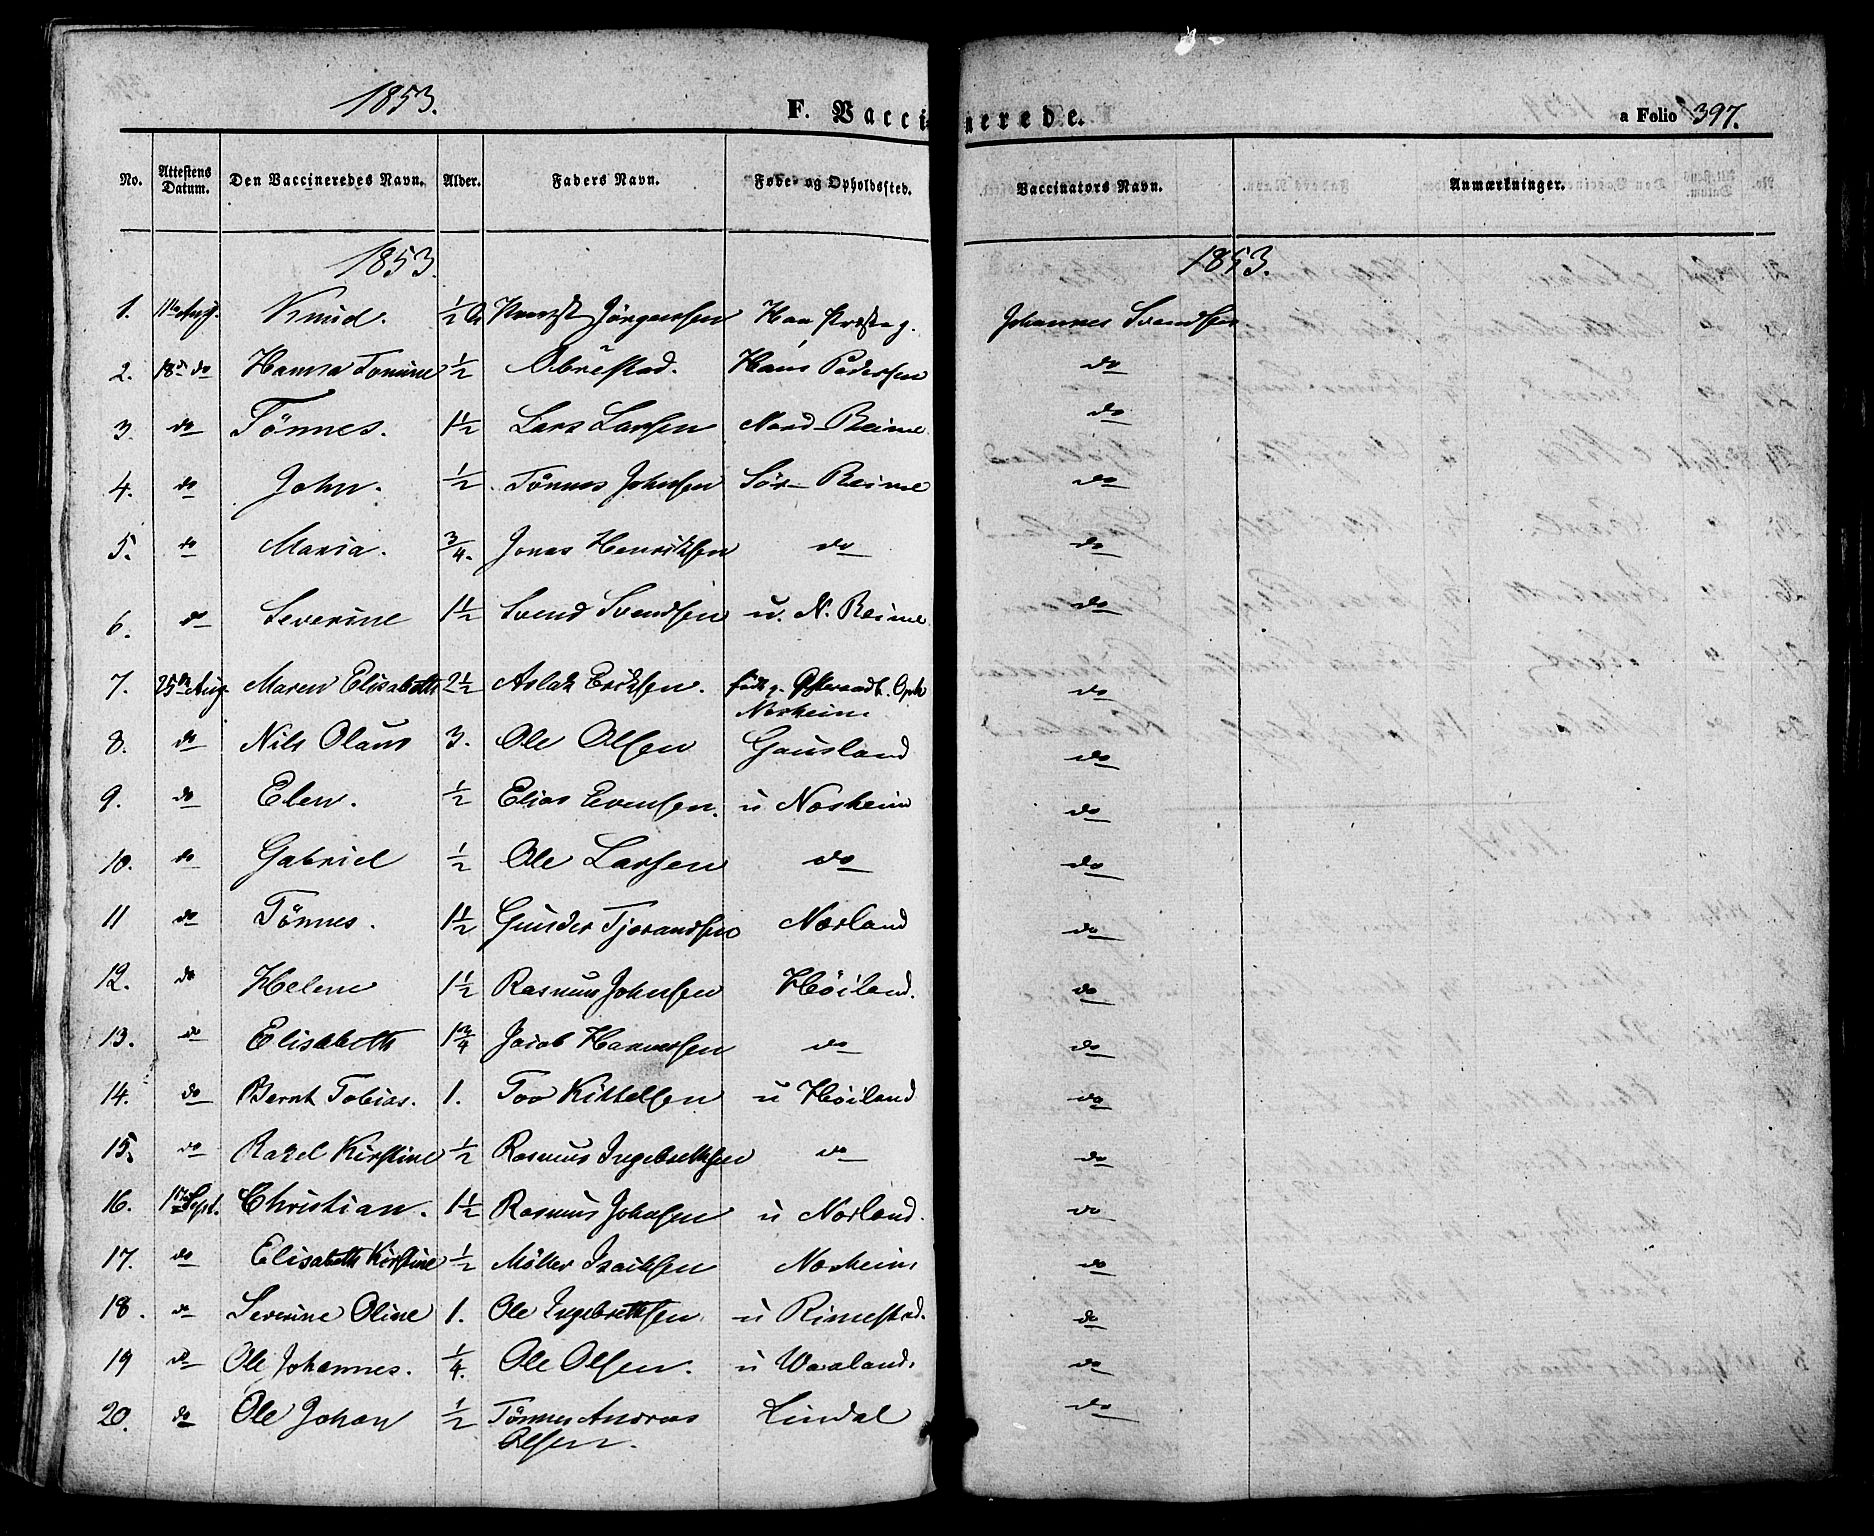 1853. F. Vaccinerede. a Folio 397.
No. Attestens Datum. Den Vaccineredes Navn. Alder. Faders Navn. Føde- og Opholdssted. Vaccinators Navn. Anmærkninger.
1853. 1853.
1. 11te Aug. Knud. 1/2 Jörgensen Haa Johannes Svendsen
2. 18de do Hanna Tomine 1/2 Obrestad. Hans Pedersen do
3. do Tönnes. 1 1/2 Lars Larsen Nord-Reime do
4. do John. 1/2 Tönnes Johnsen Sör-Reime do
5. do Maria. 3/4. Jonas Henriksen do do
6. do Severine 1 1/2 Svend Svendsen u. N. Reime do
7. 25de Aug. Maren Elisabeth 2 1/2 Aslak Eriksen. do
Norheim
8. do Nils Olaus 3. Ole Olsen Gausland do
9. do Elen. 1/2 Elias Evensen. u Norheim do
10. do Gabriel 1/2 Ole Larsen do do
11 do Tönnes. 1 1/2 Gunder Tjorandsen Nærland do
12. do Helene 1 1/2 Rasmus Johnsen Höiland. do
13. do Elisabeth 1 3/4 Jacob Hansen do do
14. do Bernt Tobias. 1. Tov Kittelsen u Höiland do
15. do Rakel Kirstine 1/2 Rasmus Ingebrethsen do do
16. Sept. Christian. 1 1/2 Rasmus Johnsen u Norland. do
17. do Elisabeth Kirstine 1/2 Möller Isacksen Norheim do
18. do Severine Oline 1. Ole Ingebrethsen u Rimestad. do
19 do Ole Johannes. 1/4. Ole Olsen. u do
20. do Ole Johan 1/2 Tönnes Andreas Lindal do
Olsen.